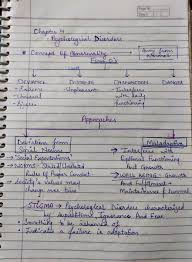 Chapter 4
Psychological Disorders
Concept of Abnormality
Away from normal
(Four D's)
DEVIANCE DISTRESS DYSFUNCTION DANGER
Extreme Unpleasant Interferes
Unusual with daily
functioning
Approaches
Deviation from Maladaptive
Social Norms Interferes with
Social Expectations Optimal Functioning
Norms - Stated/Unstated And Growth
Rules of Proper Conduct WELL BEING - Growth
Society's Values may And Fulfillment
change over time
STIGMA → Psychological Disorders characterised
by Superstitions, Ignorance And Fear
to be ashamed of
Indicates a failure in adaptation